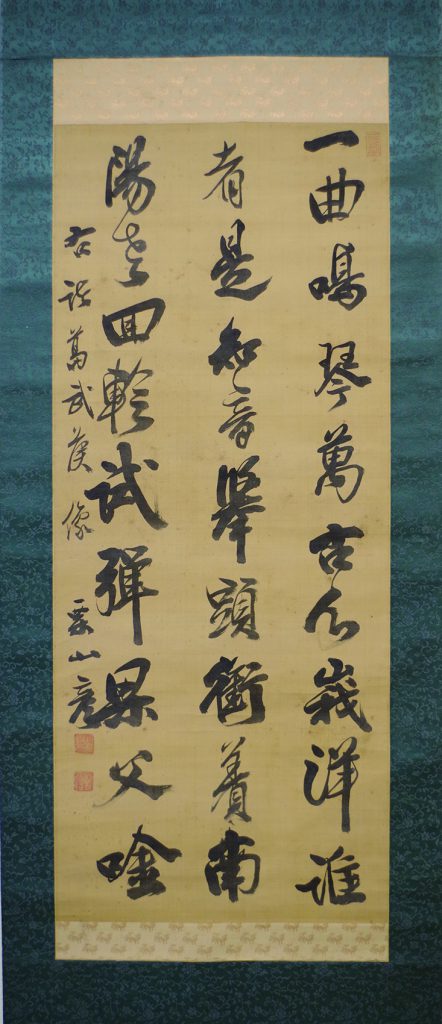 一曲鳴琴萬古心峩洋誰
者是知音舉頭衝着南
陽老回軫試彈梁父唫
右諸葛武侯像 栗山彦